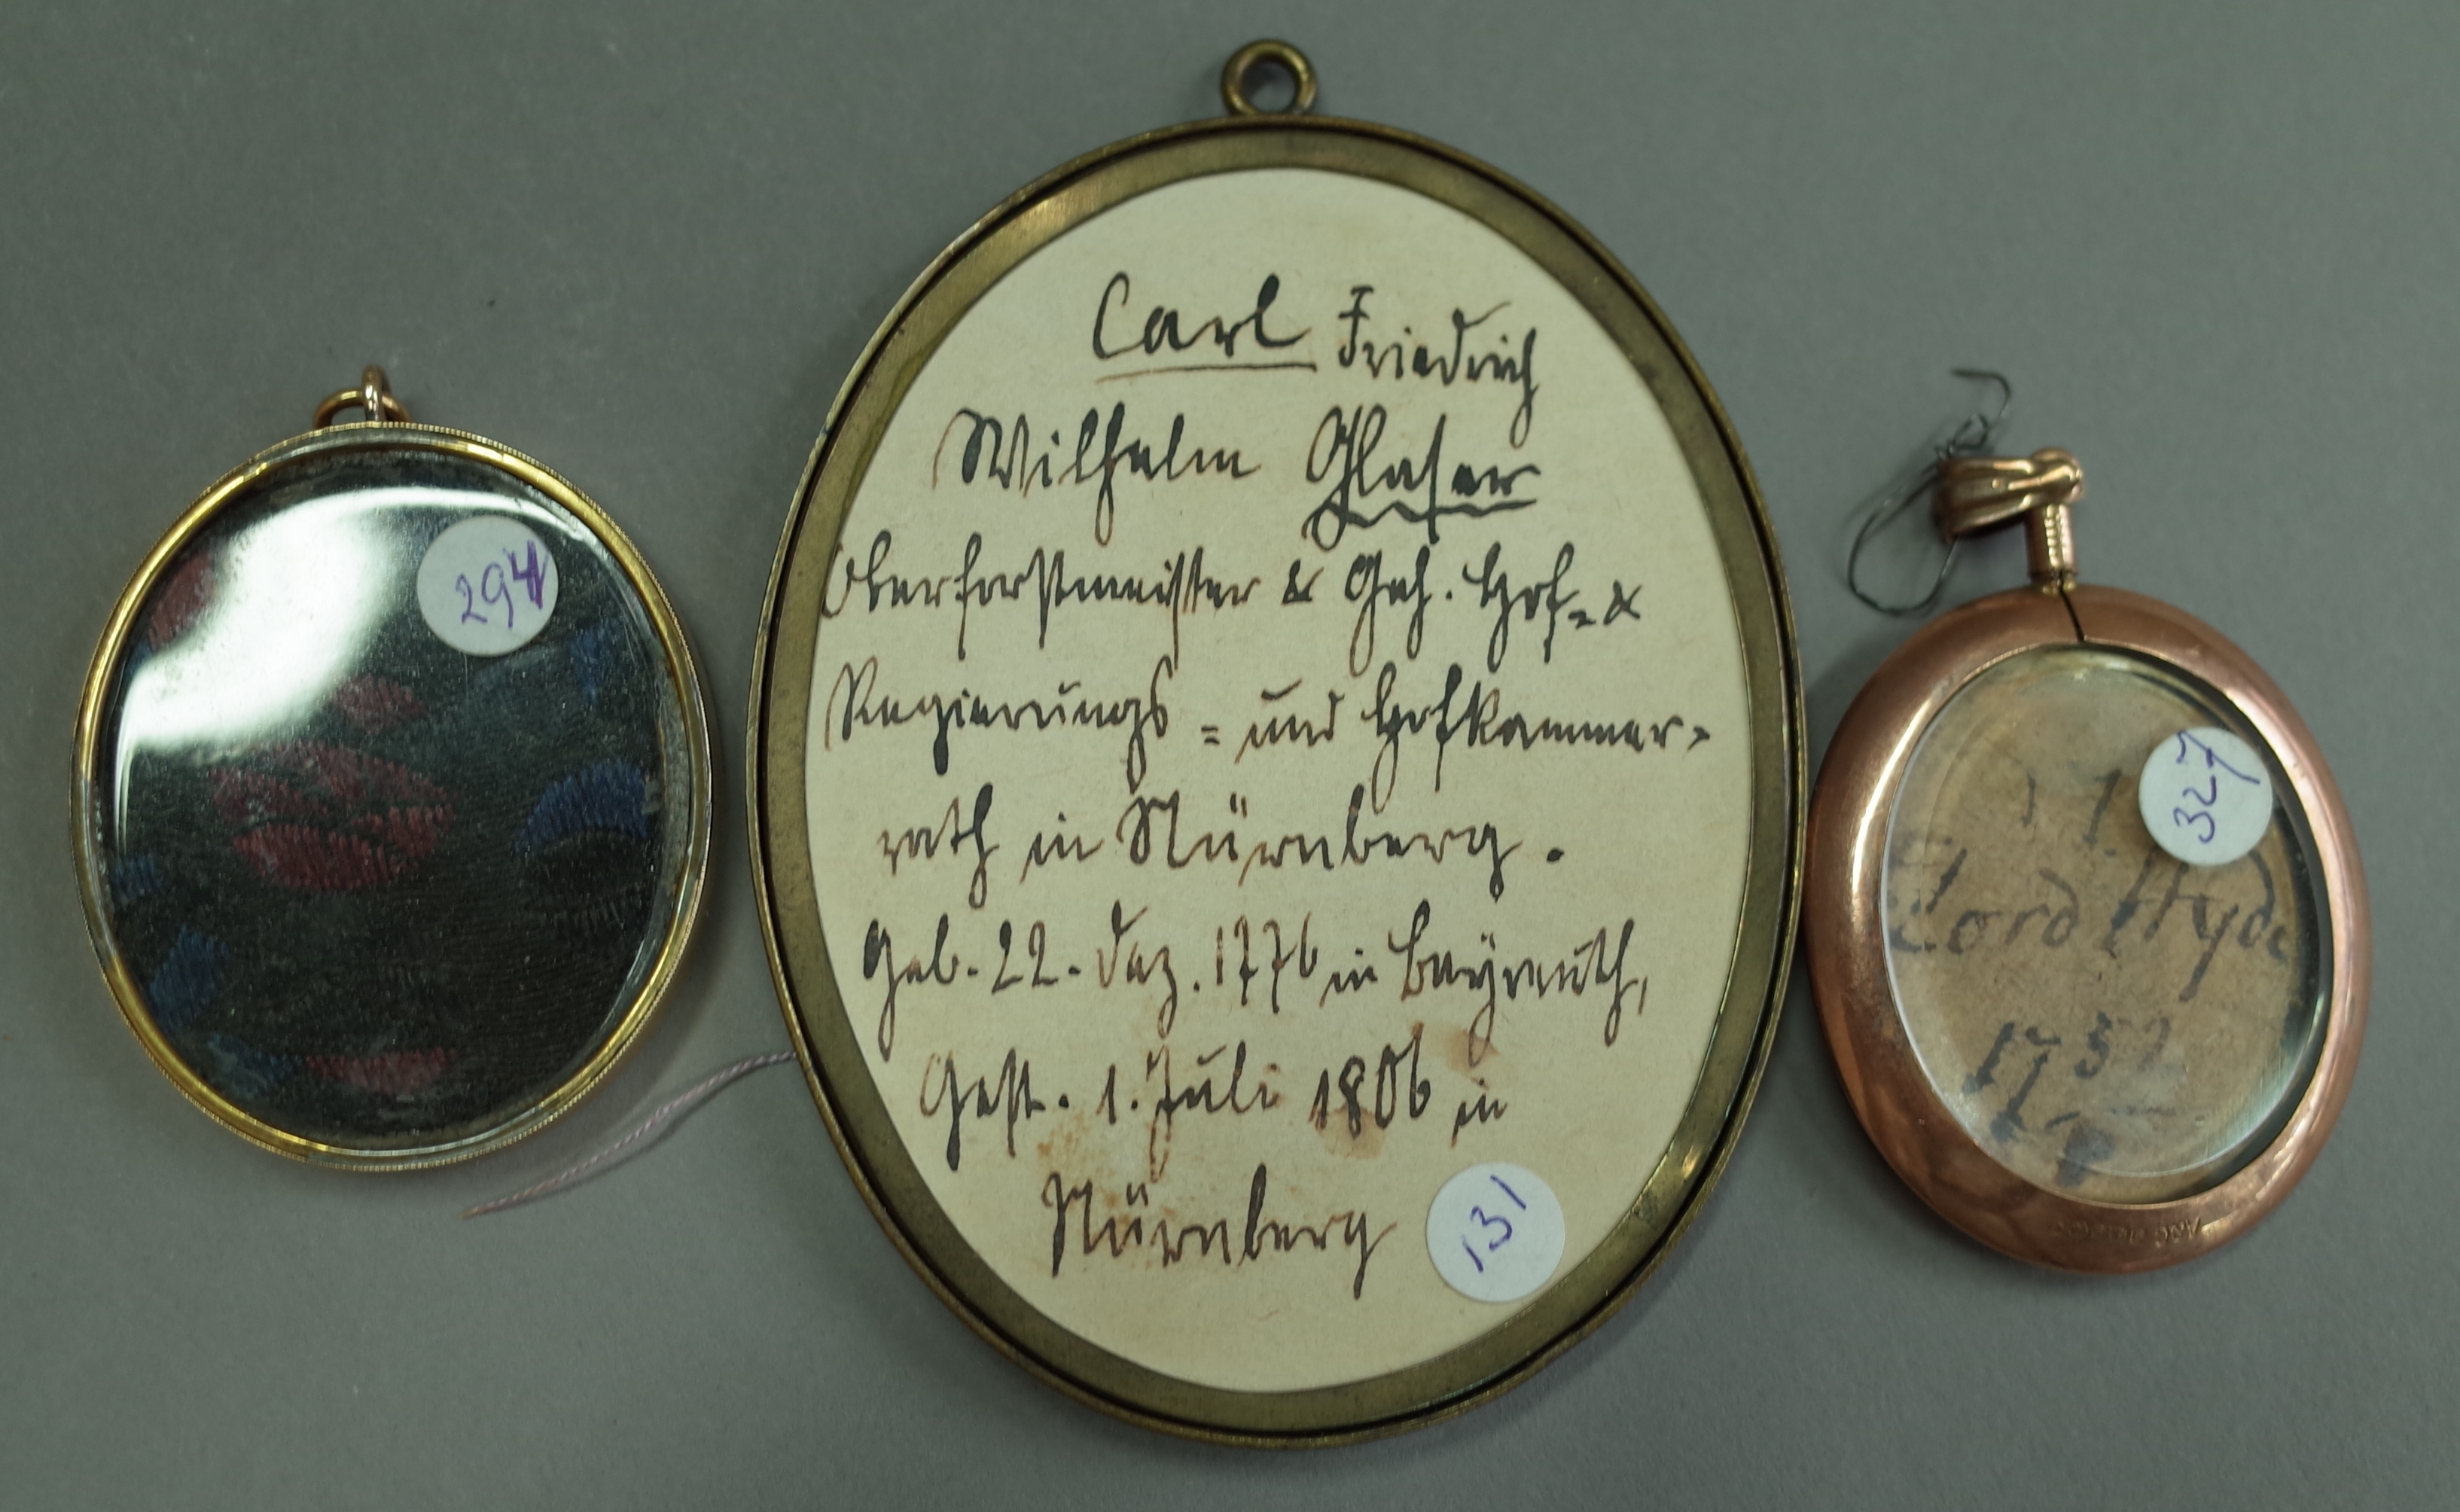 294
Carl Friedrich
Wilhelm Glaser
Oberforstmeister & Geh. Hof- &
Regierungs= und Hofkammer-
rath in Nürnberg.
Geb. 22. Dez. 1776 in Bayreuth,
Gest. 1. Juli 1806 in
Nürnberg
131
327
Lord Hyde
175